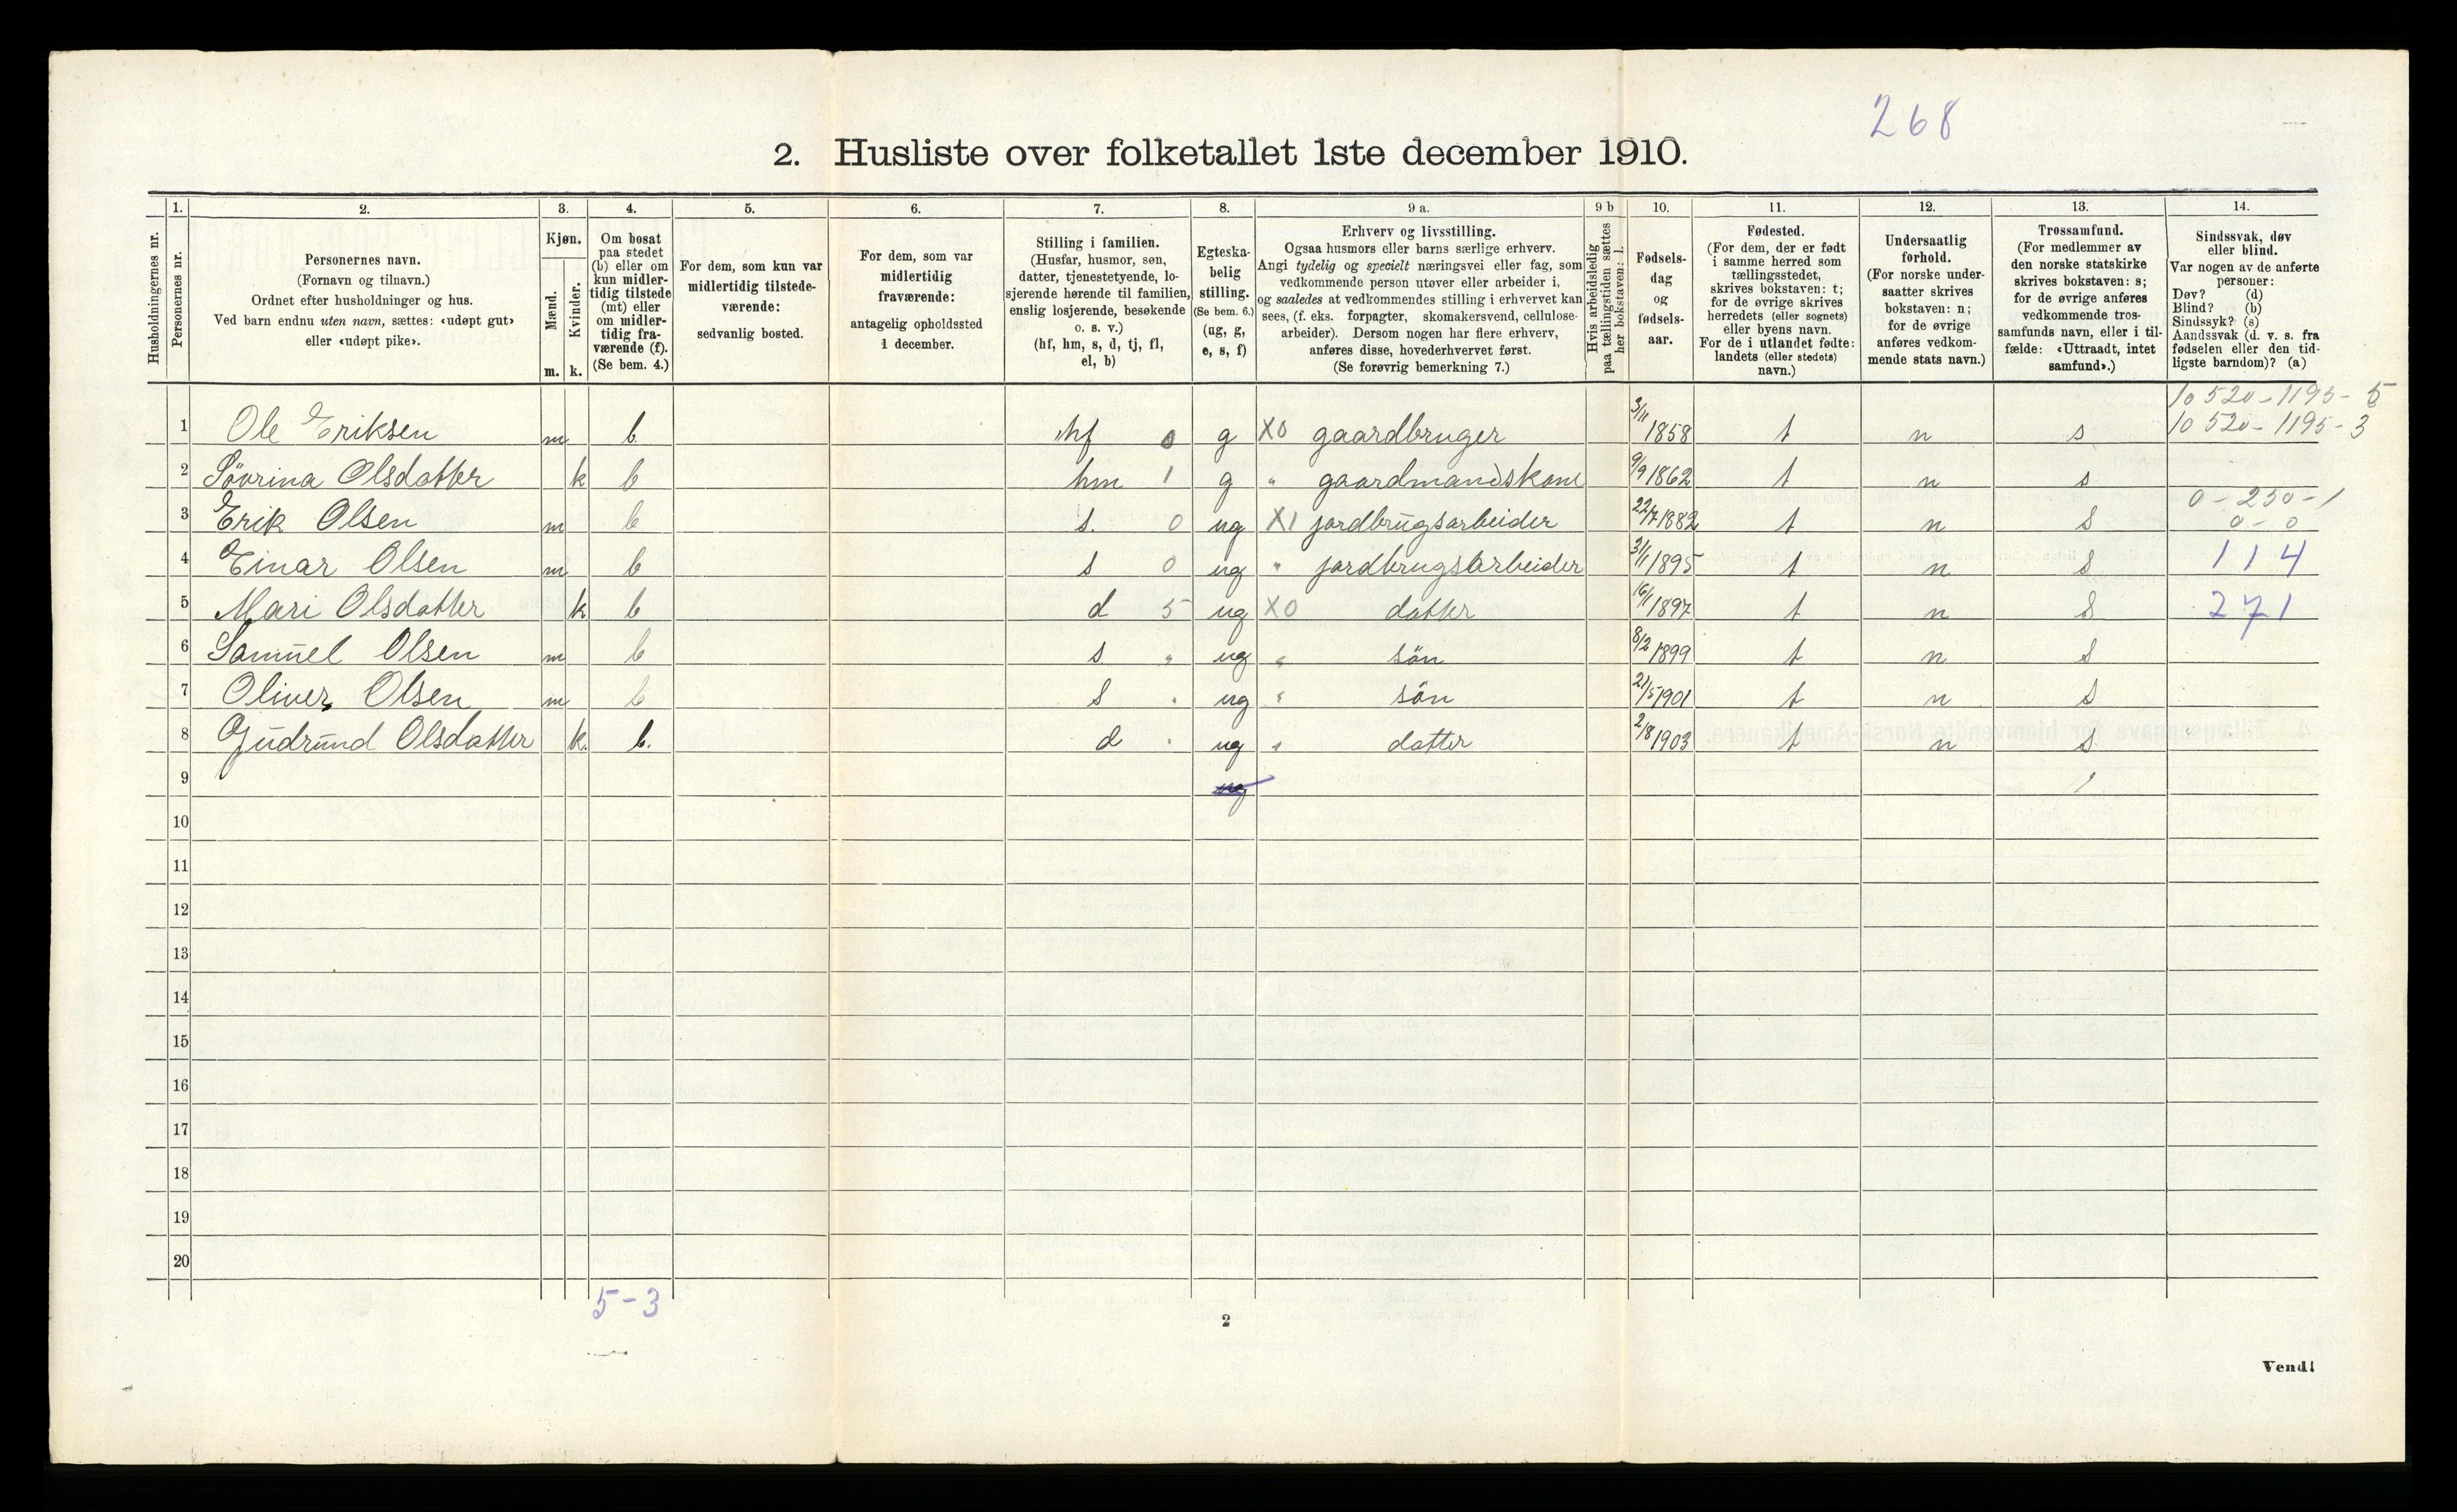 268
2. Husliste over folketallet 1ste december 1910.
Husholdningernes nr.
1.
Personernes nr.
2.
Personernes navn.
(Fornavn og tilnavn.)
Ordnet efter husholdninger og hus.
Ved barn endnu uten navn, sættes: «udøpt gut»
eller «udøpt pike».
3.
Kjøn.
Mænd.
Kvinder.
m. k.
4.
Om bosat
paa stedet
(b) eller om
kun midler-
tidig tilstede
(mt) eller
om midler-
tidig fra-
værende (f).
(Se bem. 4.)
5.
For dem, som kun var
midlertidig tilstede-
værende:
sedvanlig bosted.
6.
For dem, som var
midlertidig
fraværende:
antagelig opholdssted
1 december.
7.
Stilling i familien.
(Husfar, husmor, søn,
datter, tjenestetyende, lo-
sjerende hørende til familien,
enslig losjerende, besøkende
o. s. v.)
(hf, hm, s, d, tj, fl,
el, b)
8.
Egteska-
belig
stilling.
(Se bem. 6.)
(ug, g,
e, s, f)
9 a.
Erhverv og livsstilling.
Ogsaa husmors eller barns særlige erhverv.
Angi tydelig og specielt næringsvei eller fag, som
vedkommende person utøver eller arbeider i,
og saaledes at vedkommendes stilling i erhvervet kan
sees, (f. eks. forpagter, skomakersvend, cellulose-
arbeider). Dersom nogen har flere erhverv,
anføres disse, hovederhvervet først.
(Se forøvrig bemerkning 7.)
9 b
Hvis arbeidsledig
paa tællingstiden sættes
her bokstaven: l.
10.
Fødsels-
dag
og
fødsels-
aar.
11.
Fødested.
(For dem, der er født
i samme herred som
tællingsstedet,
skrives bokstaven: t;
for de øvrige skrives
herredets (eller sognets)
eller byens navn.
For de i utlandet fødte:
landets (eller stedets)
navn.)
12.
Undersaatlig
forhold.
(For norske under-
saatter skrives
bokstaven: n;
for de øvrige
anføres vedkom-
mende stats navn.)
13.
Trossamfund.
(For medlemmer av
den norske statskirke
skrives bokstaven: s;
for de øvrige anføres
vedkommende tros-
samfunds navn, eller i til-
fælde: «Uttraadt, intet
samfund».)
14.
Sindssvak, døv
eller blind.
Var nogen av de anførte
personer:
Døv? (d)
Blind? (b)
Sindssyk? (s)
Aandssvak (d. v. s. fra
fødselen eller den tid-
ligste barndom)? (a)
10 520 - 1195 - 5
1 Ole Eriksen m b hf 0 g X0 gaardbruger 3/11 1858 t n s 10 520 - 1195 - 3
2 Sövrina Olsdatter k b hm 1 g " gaardmandskone 9/9 1862 t n s
0 - 250 - 1
3 Erik Olsen m b s. 0 ug X1 jordbrugsarbeider 22/7 1882 t n s 0 - 0
4 Einar Olsen m b s 0 ug " jordbrugsarbeider 31/1 1895 t n s 114
5 Mari Olsdatter k b d 5 ug X0 datter 16/1 1897 t n s 271
6 Samuel Olsen m b s " ug " sön 8/2 1899 t n s
7 Oliver Olsen m b s " ug " sön 21/5 1901 t n s
8 Gudrund Olsdatter k. b. d " ug " datter 2/8 1903 t n s
9 ug
10
11
12
13
14
15
16
17
18
19
20
5 - 3
2
Vend!